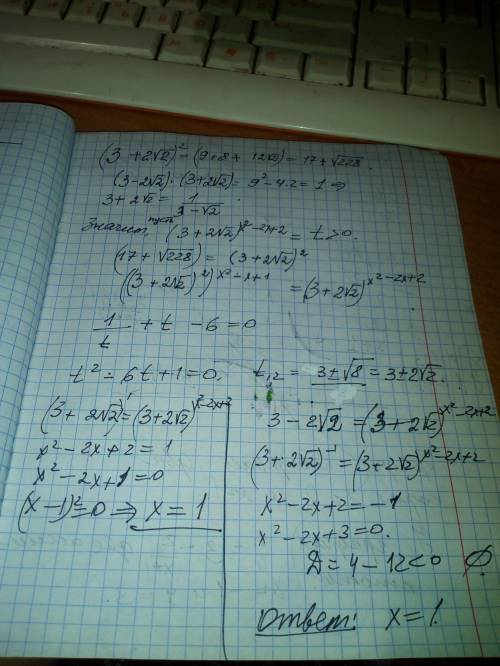 (3 + 2√2)² = (9 + 8 + 12√2) = 17 + √228.
(3 - 2√2) · (3 + 2√2) = 9² - 4·2 = 1 ⇒
3 + 2√2 = 1 / (3 - √2)
Значит, пусть (3 + 2√2)^(x² - 2x + 2) = t > 0.
(17 + √228) = (3 + 2√2)²
((3 + 2√2)²)^(x² - x + 1) = (3 + 2√2)^(x² - 2x + 2)
1/t + t - 6 = 0
t² - 6t + 1 = 0. t₁,₂ = 3 ± √8 = 3 ± 2√2.
(3 + 2√2)¹ = (3 + 2√2)^(x² - 2x + 2)
x² - 2x + 2 = 1
x² - 2x + 1 = 0
(x - 1)² = 0 ⇒ x = 1
3 - 2√2 = (3 + 2√2)^(x² - 2x + 2)
(3 + 2√2)⁻¹ = (3 + 2√2)^(x² - 2x + 2)
x² - 2x + 2 = -1
x² - 2x + 3 = 0.
Д = 4 - 12 < 0 ∅
Ответ: x = 1.